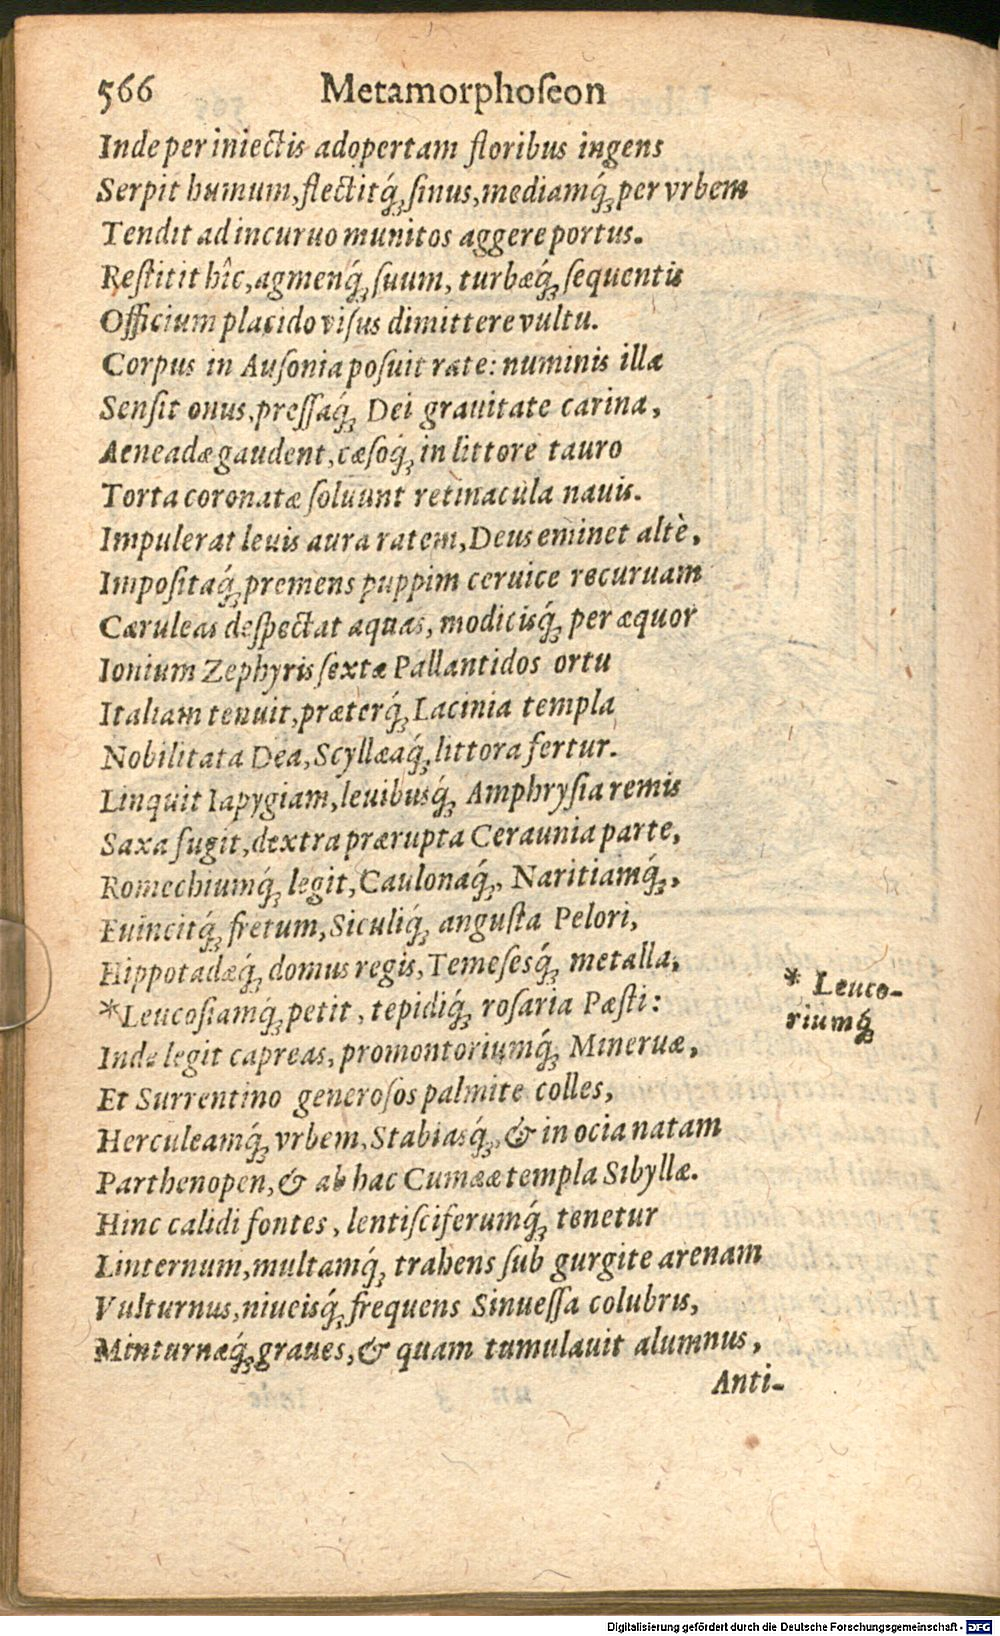 566 Metamorphoſeon
Inde per iniectis adopertam floribus ingens
Serpit humum, flectitq́; ſinus, mediamq́; per vrbem
Tendit ad incuruo munitos aggere portus.
Reſtitit hîc, agmenq́; ſuum, turbæq́; ſequentis
Officium placido viſus dimittere vultu.
Corpus in Auſonia poſuit rate: numinis illa
Senſit onus, preſſaq́; Dei grauitate carina,
Aeneadæ gaudent, cæſoq́; in littore tauro
Torta coronatæ ſoluunt retinacula nauis.
Impulerat leuis aura ratem, Deus eminet altè,
Impoſitaq́; premens puppim ceruice recuruam
Cæruleas deſpectat aquas, modicisq́; per æquor
Ionium Zephyris ſextæ Pallantidos ortu
Italiam tenuit, præterq́; Lacinia templa
Nobilitata Dea, Scyllæaq́; littora fertur.
Linquit Iapygiam, leuibusq́; Amphryſia remis
Saxa fugit, dextra prærupta Ceraunia parte,
Romechiumq́; legit, Caulonaq́;, Naritiamq́;,
Euincitq́; fretum, Siculiq́; anguſta Pelori,
Hippotadæq́; domus regis, Temeſesq́; metalla,
*Leucoſiamq́; petit, tepidiq́; roſaria Pæſti:
* Leuco-
riumq́;
Inde legit capreas, promontoriumq́; Mineruæ,
Et Surrentino generoſos palmite colles,
Herculeamq́; vrbem, Stabiasq́;, & in ocia natam
Parthenopen, & ab hac Cumææ templa Sibyllæ.
Hinc calidi fontes, lentiſciferumq́; tenetur
Linternum, multamq́; trahens ſub gurgite arenam
Vulturnus, niueisq́; frequens Sinueſſa colubris,
Minturnæq́; graues, & quam tumulauit alumnus,
Anti-
Digitalisierung gefördert durch die Deutsche Forschungsgemeinschaft - DFG